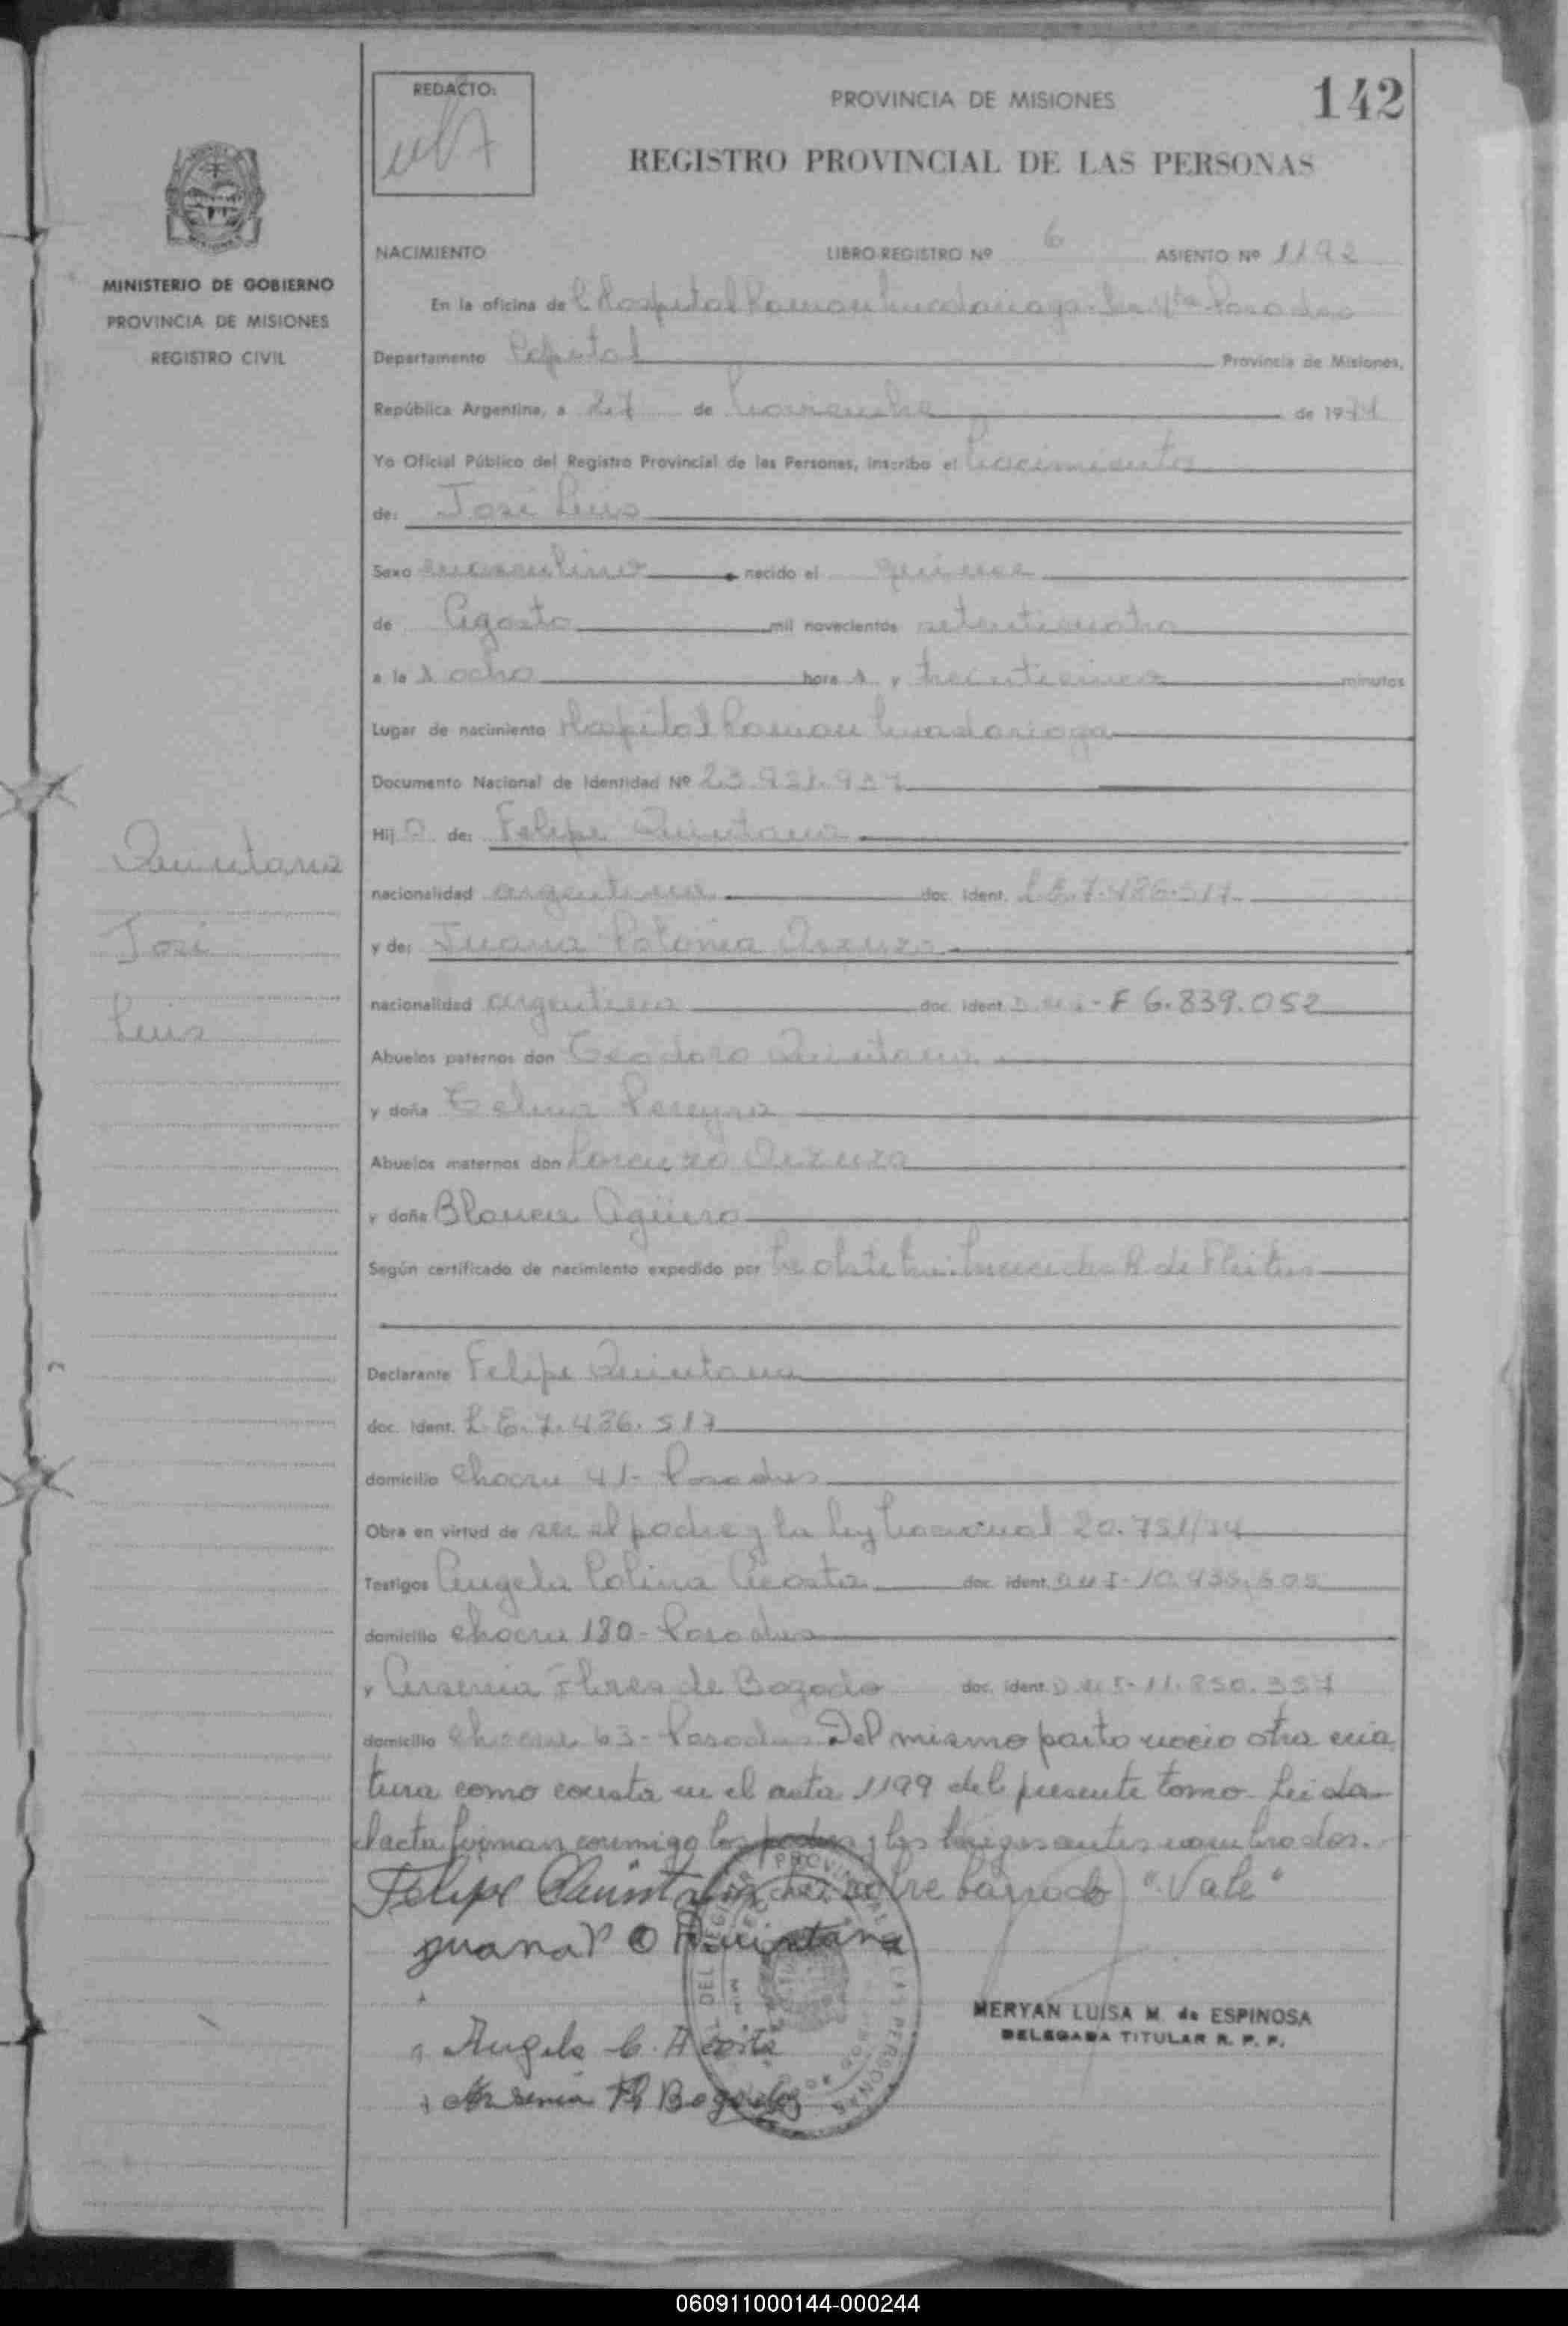 REDACTO:
PROVINCIA DE MISIONES
142
REGISTRO PROVINCIAL DE LAS PERSONAS
MINISTERIO DE GOBIERNO
PROVINCIA DE MISIONES
REGISTRO CIVIL
NACIMIENTO LIBRO-REGISTRO Nº 6 ASIENTO Nº
En la oficina de l Hospital Ramon Madariaga Posadas
Departamento Capital Provincia de Misiones,
República Argentina, a 27 de Noviembre de 1974
Yo Oficial Público del Registro Provincial de las Personas, inscribo el Nacimiento
de: José Luis
Sexo masculino nacido el quince
de Agosto mil novecientos setenticuatro
a la s ocho hora s y treinticinco minutos
Lugar de nacimiento Hospital Ramon Madariaga
Documento Nacional de Identidad Nº
Hij o de: Felipe Quintana
nacionalidad argentina doc. ident. L.E. 7.486.517
y de: Juana Polonia
nacionalidad argentina doc. ident. F 6.839.052
Abuelos paternos don Teodoro Quintana
y doña Telma Pereyra
Abuelos maternos don Lorenzo
y doña Blanca Agüero
Según certificado de nacimiento expedido por la obstetra de Fleitas
Declarante Felipe Quintana
doc. ident. L.E. 7.486.517
domicilio chacra 41- Posadas
Obra en virtud de ser el padre y la ley Nacional 20.751/74
Testigos Angela Colina Acosta doc. ident.
domicilio chacra 180- Posadas
y Arsenia Flores de Bogado doc. ident.
domicilio chacra 63- Posadas Del mismo parto nacio otra cria
tura como consta en el acta 1199 del presente tomo. Leida
el acta firman conmigo los padres y los testigos antes nombrados.
Felipe Quintana sobre borrado "Vale"
Juana P Quintana
Angela C. Acosta
Arsenia Fl Bogado
MERYAN LUISA M. de ESPINOSA
DELEGADA TITULAR R. P. P.
Quintana
José
Luis
060911000144-000244